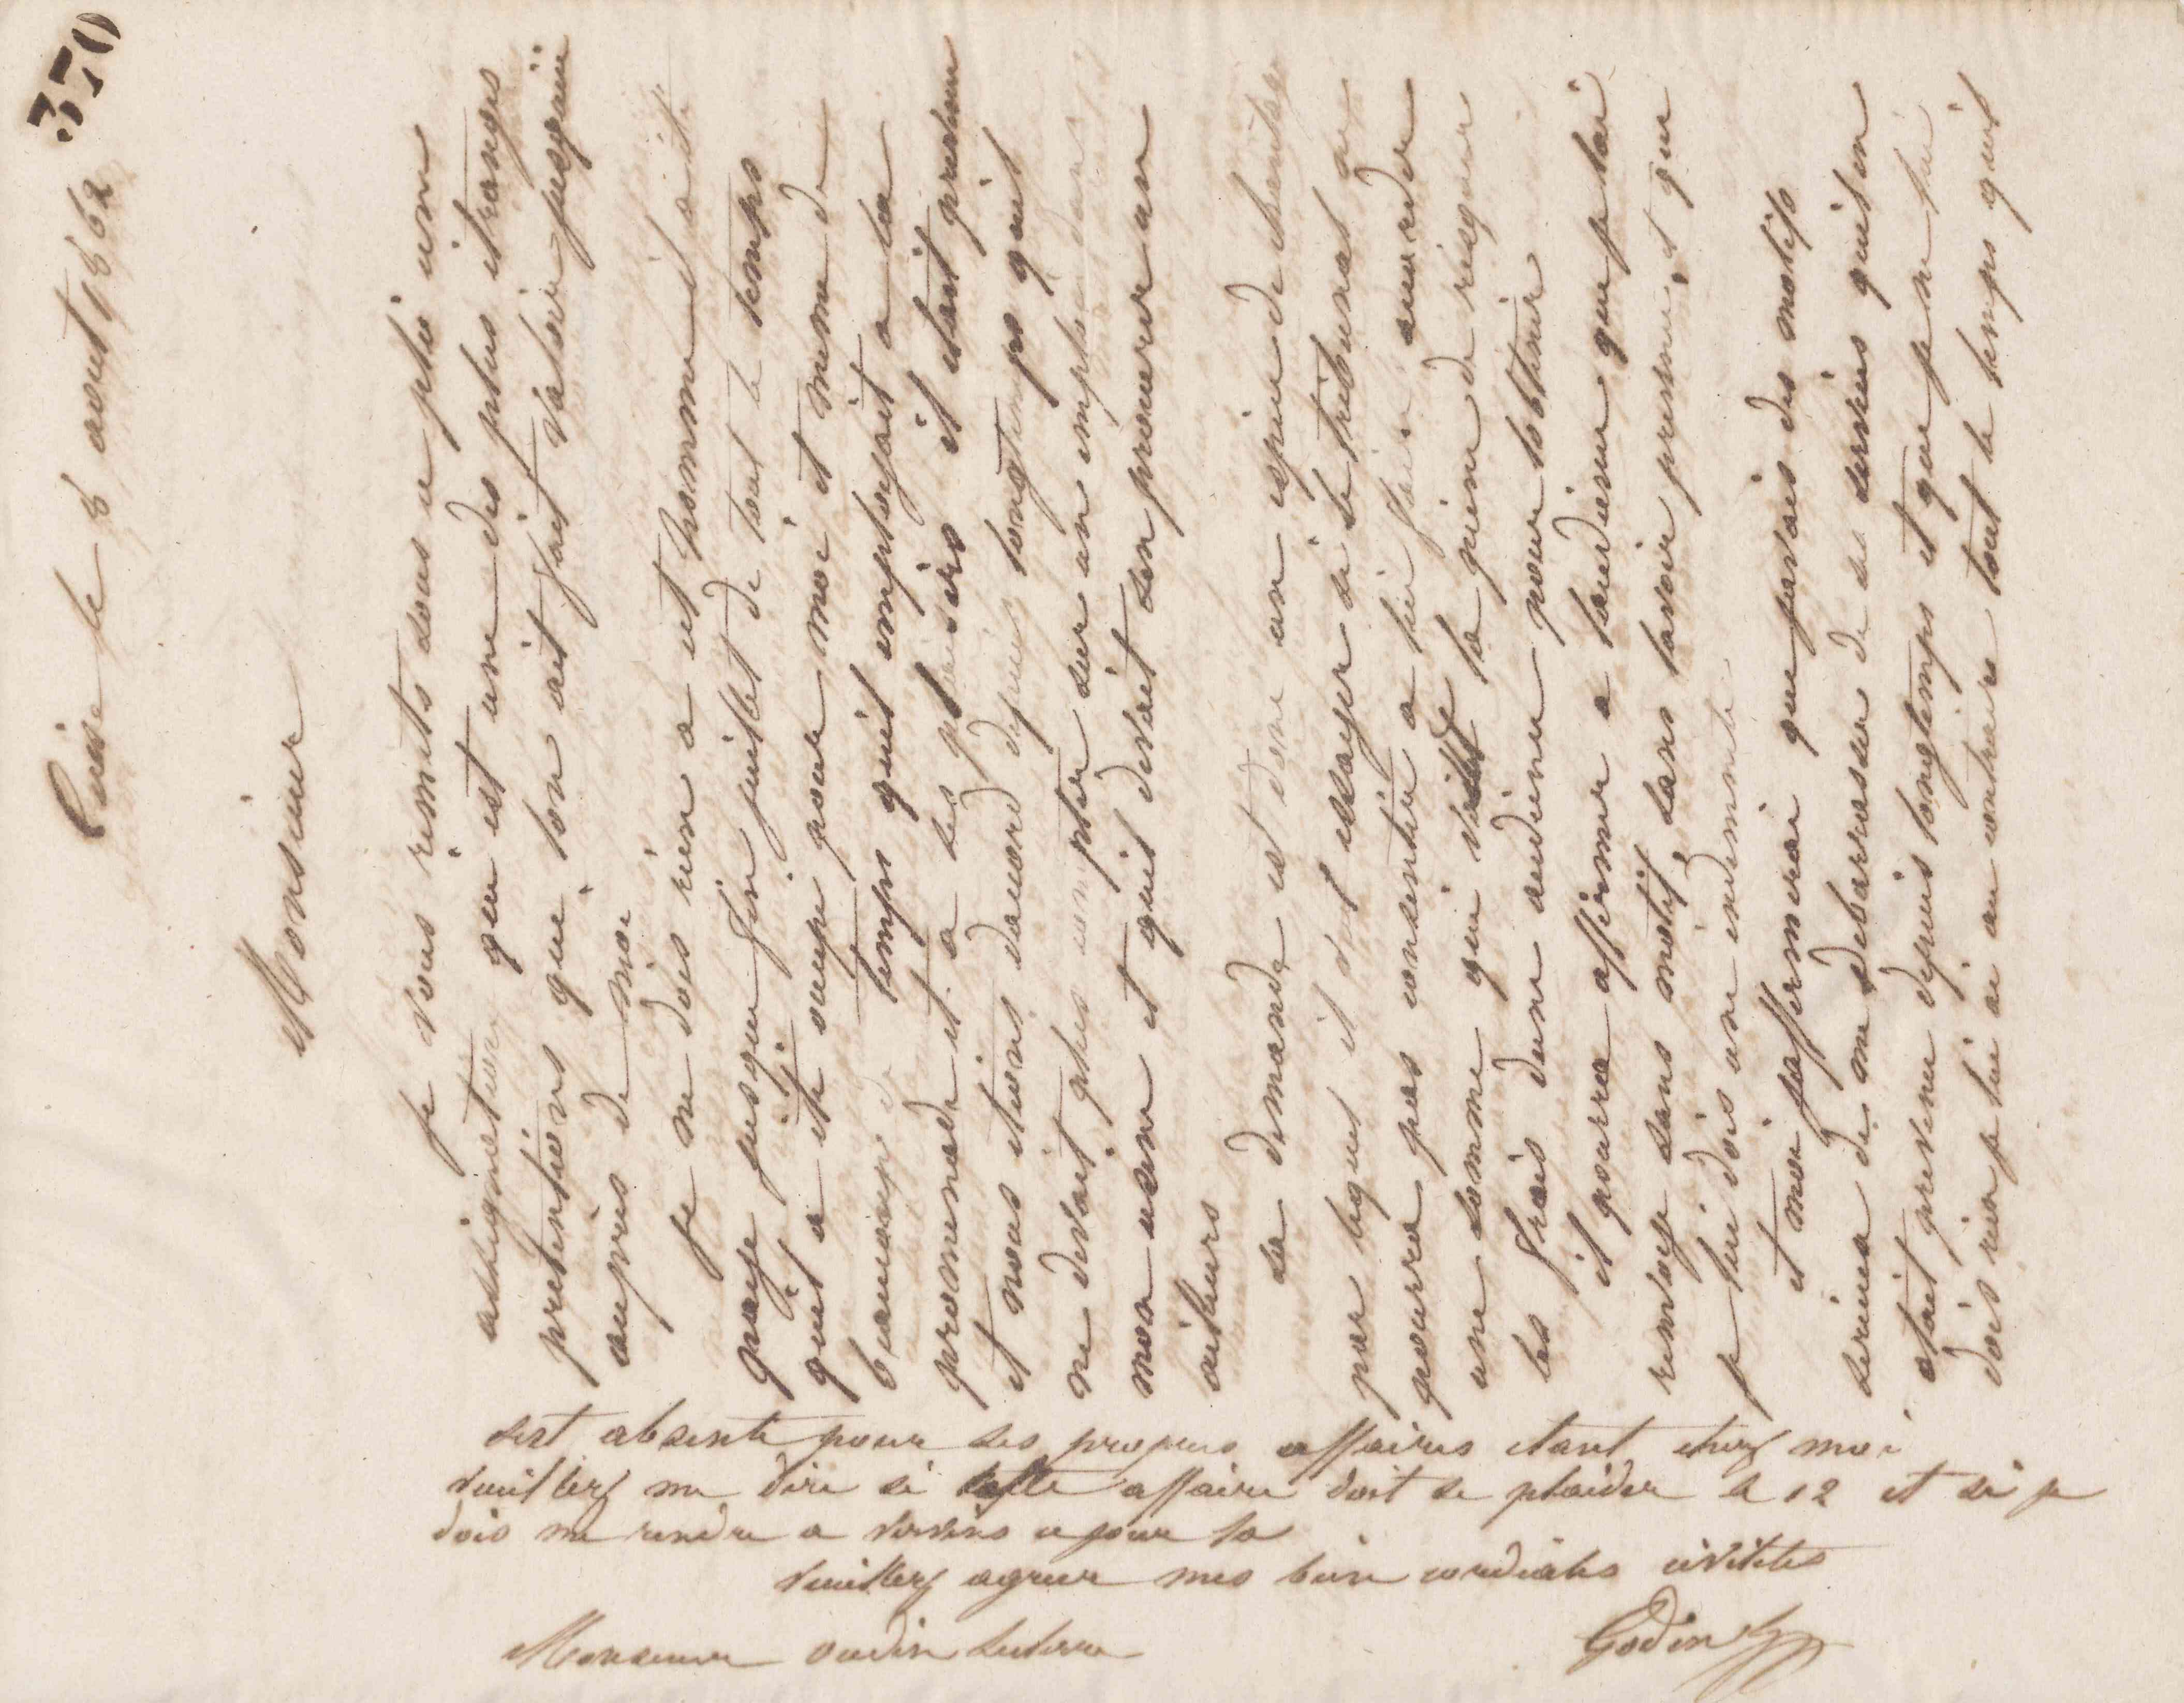 370
Guise le 8 aout 1862
Monsieur
je vous remets sous ce plis une
assignation qui est une des plus etranges
pretentions que lon ait fait valoir jusquici
aupres de moi
je ne dois rien a cet homme il a été
payé jusque fin juillet de tout le temps
quil a été occupé pour moi et meme de
beaucoup de temps quil employait a la
promenade et a ses plaisirs il etait prevenu
et nous etions daccord depuis longtemps quil
ne devait plus compter sur un emploi dans
mon usine et quil devait sen procurer un
ailleurs
sa demande est donc un espece de chantage
par lequel il veut essayer si le tribunal ne
pourra pas consentir a lui faire accorder
une somme qui vaille la peine de risquer
les frais dune audience pour lobtenir
il pourra affirmer a laudience que je lai
renvoyé sans motif, sans lavoir prevenu, et que
je lui dois une indemnité
et moi jaffirmerai que javais des motifs
serieux de me debarrasser de ses services quil en
etait prevenu depuis longtemps et que je ne lui
dois rien je lui ai au contraire tout le temps quil
sest absenté pour ses propres affaires etant chez moi
veuillez me dire si cette affaire doit se plaider le 12 et si je
dois me rendre a vervins ce jour la
veuillez agreer mes bien cordiales civilités
Godin
Monsieur oudin Leclere